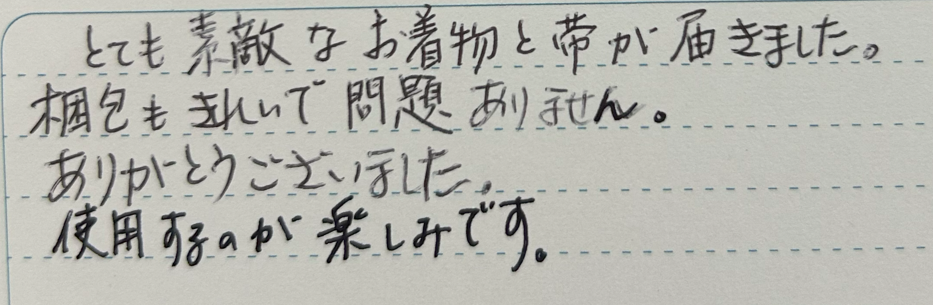 とても素敵なお着物と帯が届きました。
梱包もきれいで問題ありません。
ありがとうございました。
使用するのが楽しみです。